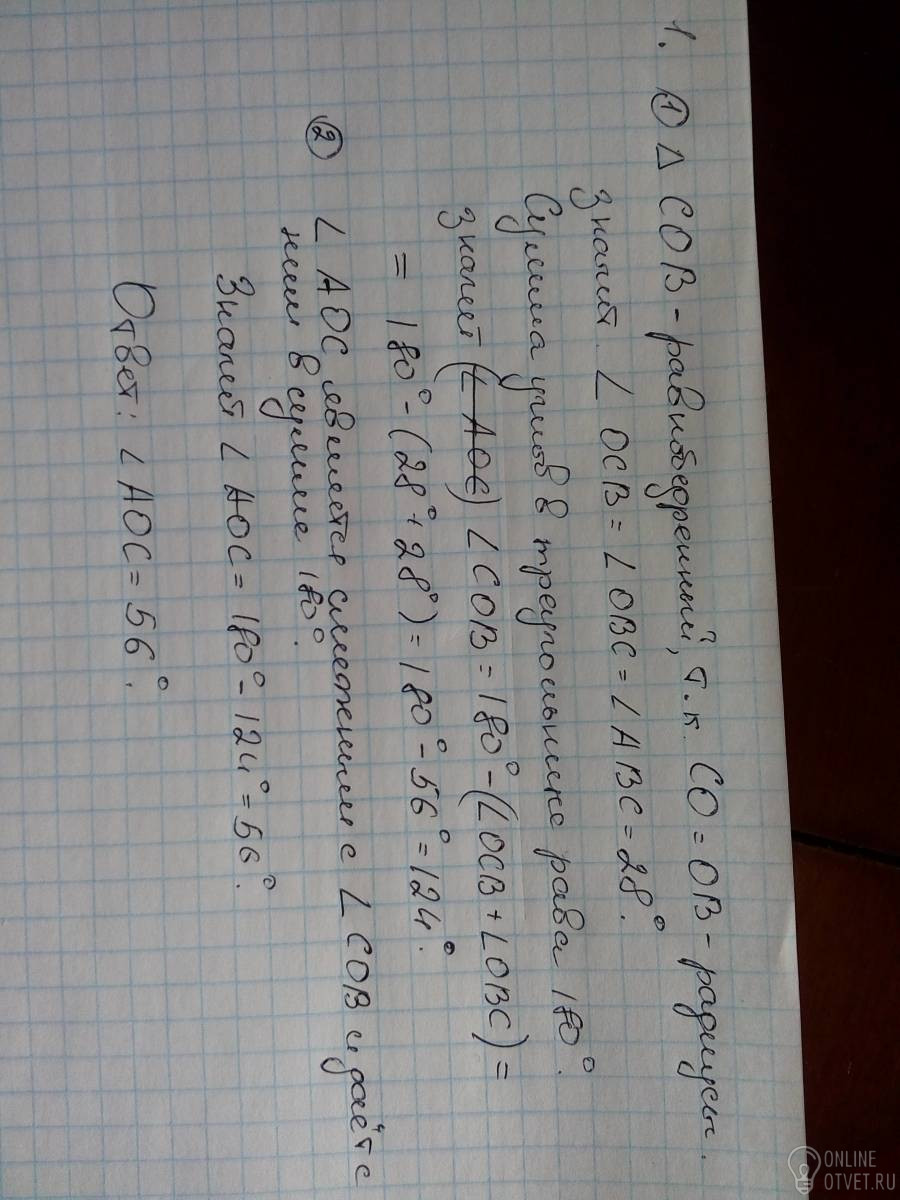 1. ① △ COB - равнобедренный, т.к. CO = OB - радиусы.
Значит ∠ OCB = ∠ OBC = ∠ ABC = 28°.
Сумма углов в треугольнике равна 180°.
Значит (∠ AOC) ∠ COB = 180° - (∠OCB + ∠OBC) =
= 180° - (28° + 28°) = 180° - 56° = 124°.
② ∠ AOC является смежным с ∠ COB и даёт с
ним в сумме 180°.
Значит ∠ AOC = 180° - 124° = 56°.
Ответ: ∠ AOC = 56°.
ONLINE
OTVET.RU